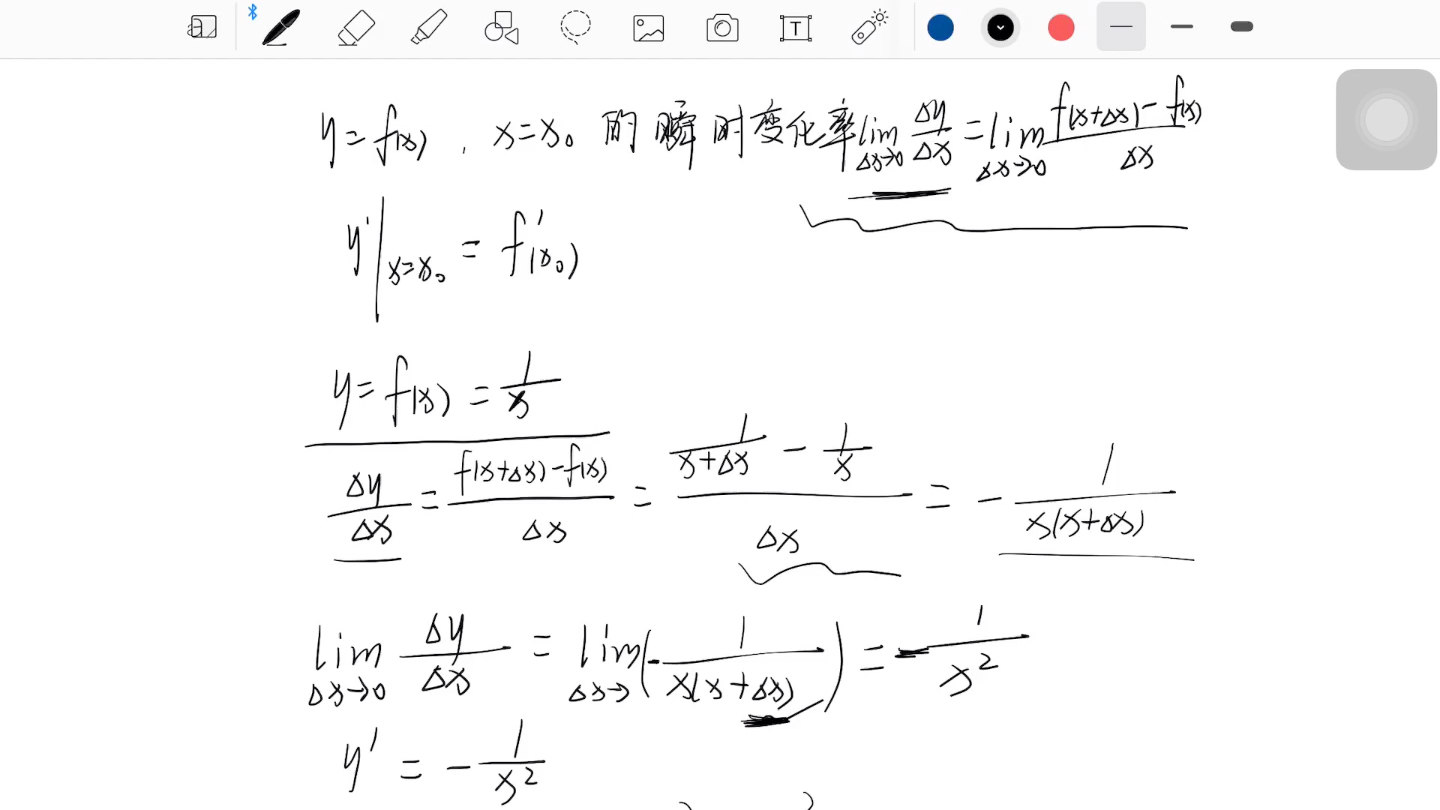 y=f(x), x=x₀ 的瞬时变化率 lim Δx→0 Δy/Δx = lim Δx→0 (f(x+Δx)-f(x))/Δx
y'|x=x₀ = f'(x₀)
y=f(x)=1/x
Δy/Δx = (f(x+Δx)-f(x))/Δx = (1/(x+Δx) - 1/x)/Δx = -1/(x(x+Δx))
lim Δx→0 Δy/Δx = lim Δx→ (-1/(x(x+Δx))) = -1/x²
y' = -1/x²